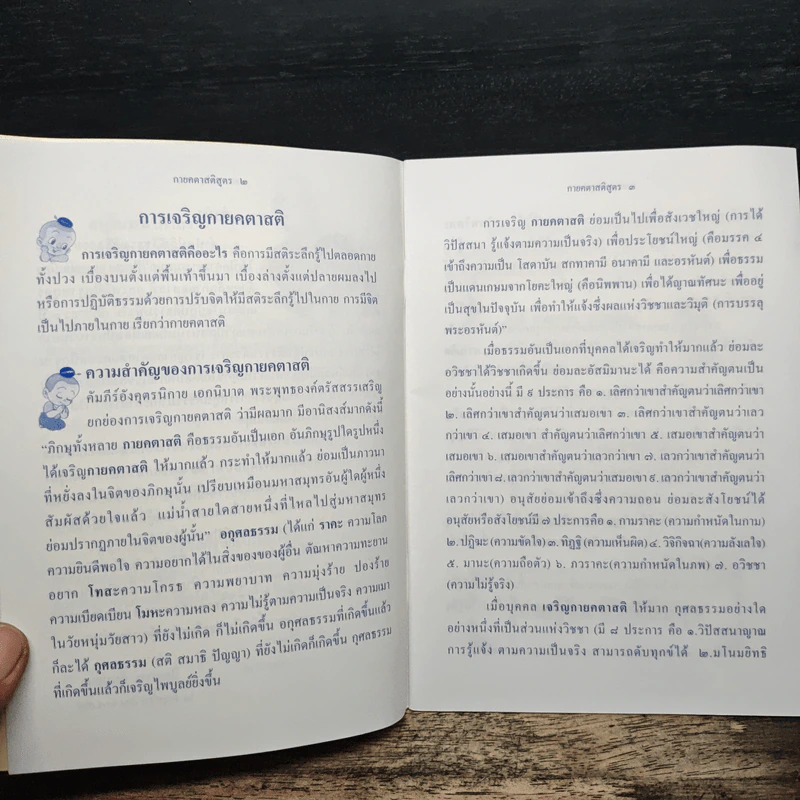 กายคตาสติสูตร ๒
การเจริญกายคตาสติ
การเจริญกายคตาสติคืออะไร คือการมีสติระลึกรู้ไปตลอดกาย
ทั้งปวง เบื้องบนตั้งแต่พื้นเท้าขึ้นมา เบื้องล่างตั้งแต่ปลายผมลงไป
หรือการปฏิบัติธรรมด้วยการปรับจิตให้มีสติระลึกรู้ไปในกาย การมีจิต
เป็นไปภายในกาย เรียกว่ากายคตาสติ
ความสำคัญของการเจริญกายคตาสติ
คัมภีร์อังคุตรนิกาย เอกนิบาต พระพุทธองค์ตรัสสรรเสริญ
ยกย่องการเจริญกายคตาสติ ว่ามีผลมาก มีอานิสงส์มากดังนี้
"ภิกษุทั้งหลาย กายคตาสติ คือธรรมอันเป็นเอก อันภิกษุรูปใดรูปหนึ่ง
ได้เจริญกายคตาสติ ให้มากแล้ว กระทำให้มากแล้ว ย่อมเป็นภาวนา
ที่หยั่งลงในจิตของภิกษุนั้น เปรียบเหมือนมหาสมุทรอันผู้ใดผู้หนึ่ง
สัมผัสด้วยใจแล้ว แม่น้ำสายใดสายหนึ่งที่ไหลไปสู่มหาสมุทร
ย่อมปรากฏภายในจิตของผู้นั้น" อกุศลธรรม (ได้แก่ ราคะ ความโลภ
ความยินดีพอใจ ความอยากได้ในสิ่งของของผู้อื่น ตัณหาความทะยาน
อยาก โทสะความโกรธ ความพยาบาท ความมุ่งร้าย ปองร้าย
ความเบียดเบียน โมหะความหลง ความไม่รู้ตามความเป็นจริง ความเมา
ในวัยหนุ่มวัยสาว) ที่ยังไม่เกิด ก็ไม่เกิดขึ้น อกุศลธรรมที่เกิดขึ้นแล้ว
ก็ละได้ กุศลธรรม (สติ สมาธิ ปัญญา) ที่ยังไม่เกิดก็เกิดขึ้น กุศลธรรม
ที่เกิดขึ้นแล้วก็เจริญไพบูลย์ยิ่งขึ้น
กายคตาสติสูตร ๓
การเจริญ กายคตาสติ ย่อมเป็นไปเพื่อสังเวชใหญ่ (การได้
วิปัสสนา รู้แจ้งตามความเป็นจริง) เพื่อประโยชน์ใหญ่ (คือมรรค ๔
เข้าถึงความเป็น โสดาบัน สกทาคามี อนาคามี และอรหันต์) เพื่อธรรม
เป็นแดนเกษมจากโยคะใหญ่ (คือนิพพาน) เพื่อได้ญาณทัศนะ เพื่ออยู่
เป็นสุขในปัจจุบัน เพื่อทำให้แจ้งซึ่งผลแห่งวิชชาและวิมุติ (การบรรลุ
พระอรหันต์)"
เมื่อธรรมอันเป็นเอกที่บุคคลได้เจริญทำให้มากแล้ว ย่อมละ
อวิชชาได้วิชชาเกิดขึ้น ย่อมละอัสมิมานะได้ คือความสำคัญตนเป็น
อย่างนั้นอย่างนี้ มี ๙ ประการ คือ ๑. เลิศกว่าเขาสำคัญตนว่าเลิศกว่าเขา
๒. เลิศกว่าเขาสำคัญตนว่าเสมอเขา ๓. เลิศกว่าเขาสำคัญตนว่าเลว
กว่าเขา ๔. เสมอเขา สำคัญตนว่าเลิศกว่าเขา ๕. เสมอเขาสำคัญตนว่า
เสมอเขา ๖. เสมอเขาสำคัญตนว่าเลวกว่าเขา ๗. เลวกว่าเขาสำคัญตนว่า
เลิศกว่าเขา ๘. เลวกว่าเขาสำคัญตนว่าเสมอเขา ๙. เลวกว่าเขาสำคัญตนว่า
เลวกว่าเขา) อนุสัยย่อมเข้าถึงซึ่งความถอน ย่อมละสังโยชน์ได้
อนุสัยหรือสังโยชน์มี ๗ ประการคือ ๑. กามราคะ (ความกำหนัดในกาม)
๒. ปฏิฆะ (ความขัดใจ) ๓. ทิฏฐิ (ความเห็นผิด) ๔. วิจิกิจฉา (ความลังเลใจ)
๕. มานะ (ความถือตัว) ๖. ภวราคะ (ความกำหนัดในภพ) ๗. อวิชชา
(ความไม่รู้จริง)
เมื่อบุคคล เจริญกายคตาสติ ให้มาก กุศลธรรมอย่างใด
อย่างหนึ่งที่เป็นส่วนแห่งวิชชา (มี ๘ ประการ คือ ๑.วิปัสสนาญาณ
การรู้แจ้ง ตามความเป็นจริง สามารถดับทุกข์ได้ ๒.มโนมยิทธิ